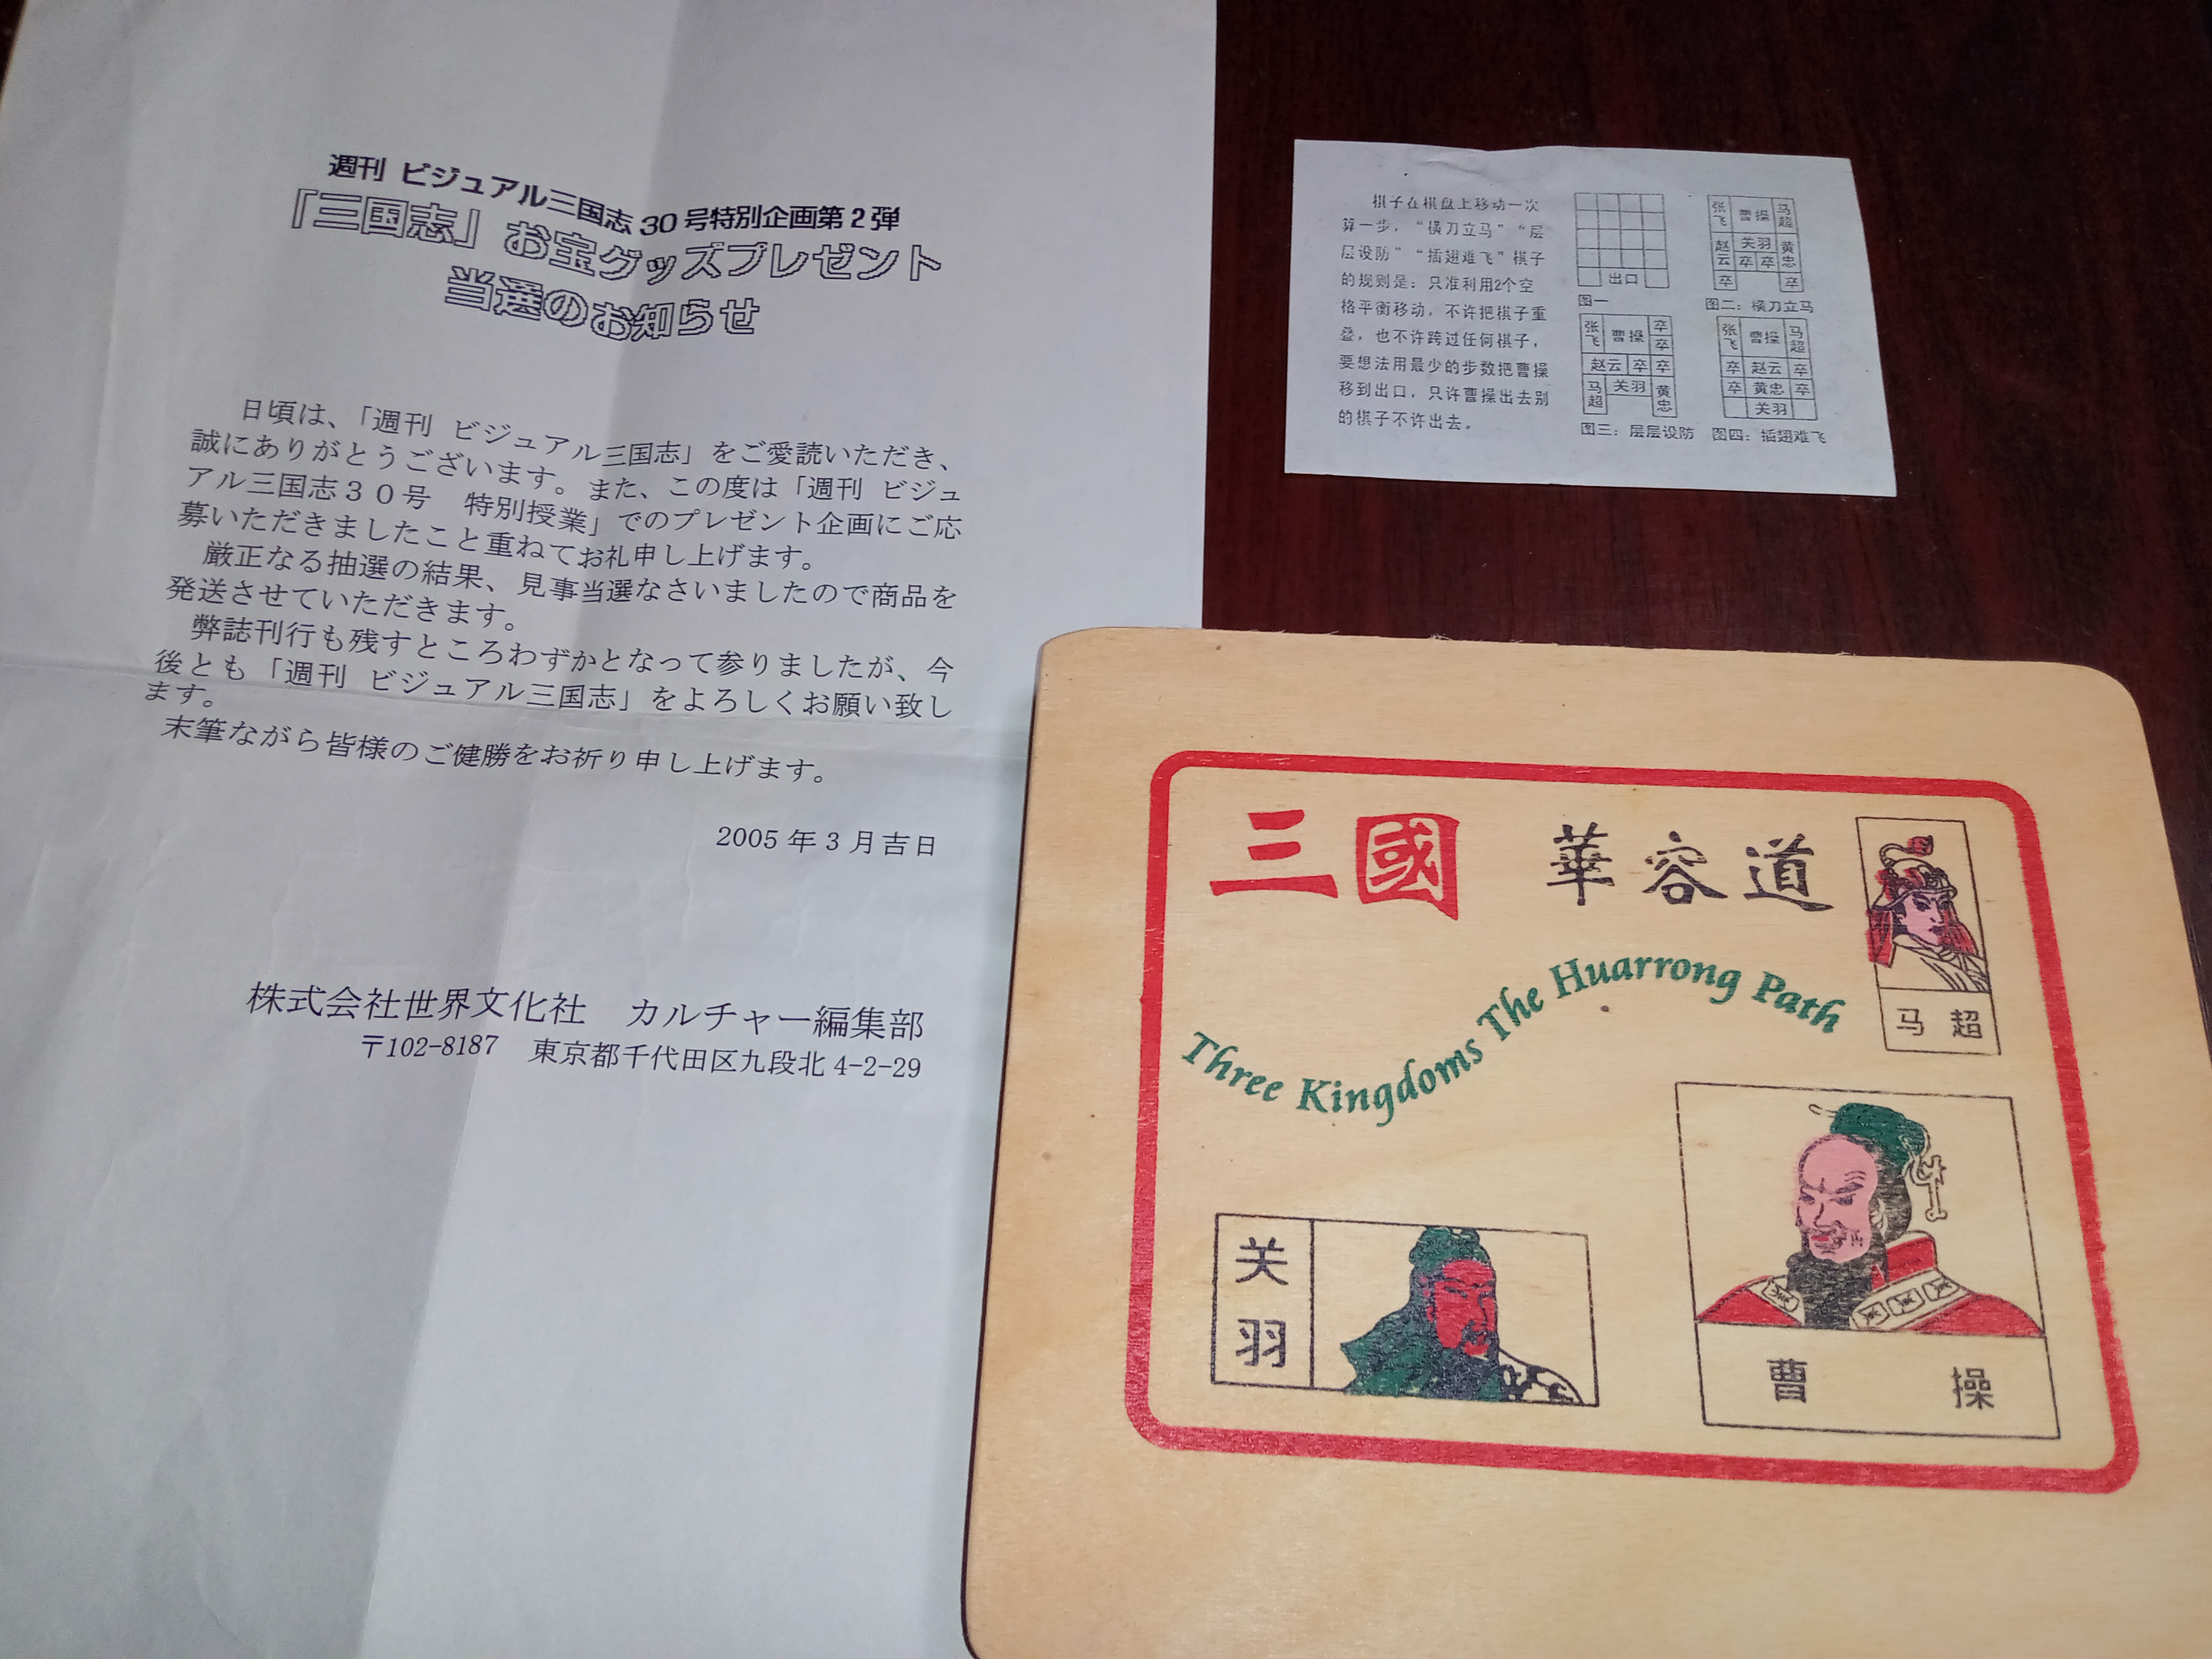 週刊 ビジュアル三国志 30 号特別企画第 2 弾
「三国志」お宝グッズプレゼント
当選のお知らせ
日頃は、「週刊 ビジュアル三国志」をご愛読いただき、
誠にありがとうございます。また、この度は「週刊 ビジュ
アル三国志30号 特別授業」でのプレゼント企画にご応
募いただきましたこと重ねてお礼申し上げます。
厳正なる抽選の結果、見事当選なさいましたので商品を
発送させていただきます。
弊誌刊行も残すところわずかとなって参りましたが、今
後とも「週刊 ビジュアル三国志」をよろしくお願い致し
ます。
末筆ながら皆様のご健勝をお祈り申し上げます。
2005 年 3 月吉日
株式会社世界文化社 カルチャー編集部
〒102-8187 東京都千代田区九段北 4-2-29
棋子在棋盘上移动一次
算一步，“横刀立马”“层
层设防”“插翅难飞”棋子
的规则是：只准利用2个空
格平衡移动，不许把棋子重
叠，也不许跨过任何棋子，
要想法用最少的步数把曹操
移到出口，只许曹操出去别
的棋子不许出去。
出口
图一
张飞 曹操 马超
赵云 关羽 黄忠
卒 卒
卒 卒
图二：横刀立马
张飞 曹操 卒
卒
赵云 卒 卒
马超 关羽 黄忠
图三：层层设防
张飞 曹操 马超
卒 赵云 卒
卒 黄忠 卒
关羽
图四：插翅难飞
三國 華容道
Three Kingdoms The Huarrong Path
马超
关羽
曹操